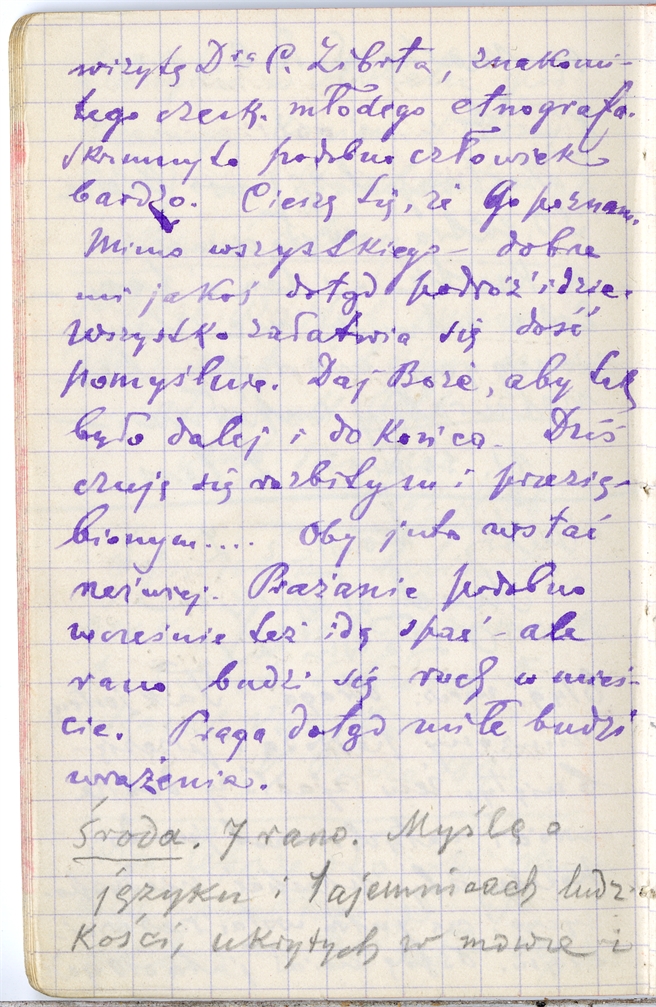 wizytę Dra C. Zibrta, znakomi-
tego czesk. młodego etnografa.
Skromny to podobno człowiek
bardzo. Cieszę się, że Go poznam.
Mimo wszystkiego – dobrze
mi jakoś dotąd podróż idzie.
Wszystko załatwia się dość
pomyślnie. Daj Boże, aby tak
było dalej i do końca. Dziś
czuję się rozbitym i przezię-
bionym.... Oby jutro wstać
rzeźwiej. Prażanie podobno
wcześnie też idą spać – ale
rano budzi się ruch w mieś-
cie. Praga dotąd miłe budzi
wrażenia.
Środa. 7 rano. Myślę o
języku i tajemnicach ludz-
kości, ukrytych w mowie i